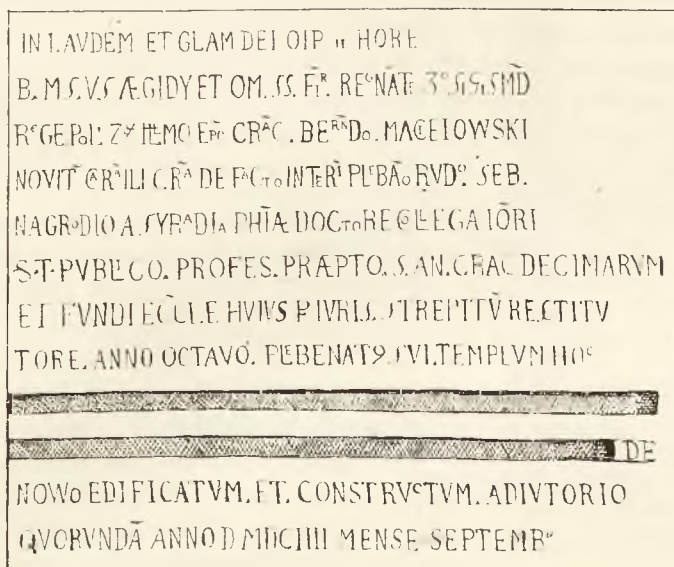 IN LAVDEM ET GLAM DEI OIP HORE
B. M. S. V. S ÆGIDY ET OM. SS. REGNATE 3° SMD
REGE POL. EPI CRAC. BERNDO. MACEIOWSKI
NOVIT CRA DE FACTO INTERI PLEBAO RVDO. SEB.
NAGRODIO A. SYRADIA PHIÆ DOCTORE COLLEGA IORI
S. T. PVBLICO. PROFES. PRÆPTO. S. AN. CRAC DECIMARVM
ET FVNDI ECCLE HVIVS P IVRIS. STREPITV RESTITV
TORE. ANNO OCTAVO. PLEBENAT9 SVI. TEMPLVM HOC
DE
NOWO EDIFICATVM. ET. CONSTRVCTVM. ADIVTORIO
QVORVNDĀ ANNO D MDCIIII MENSE SEPTEMB